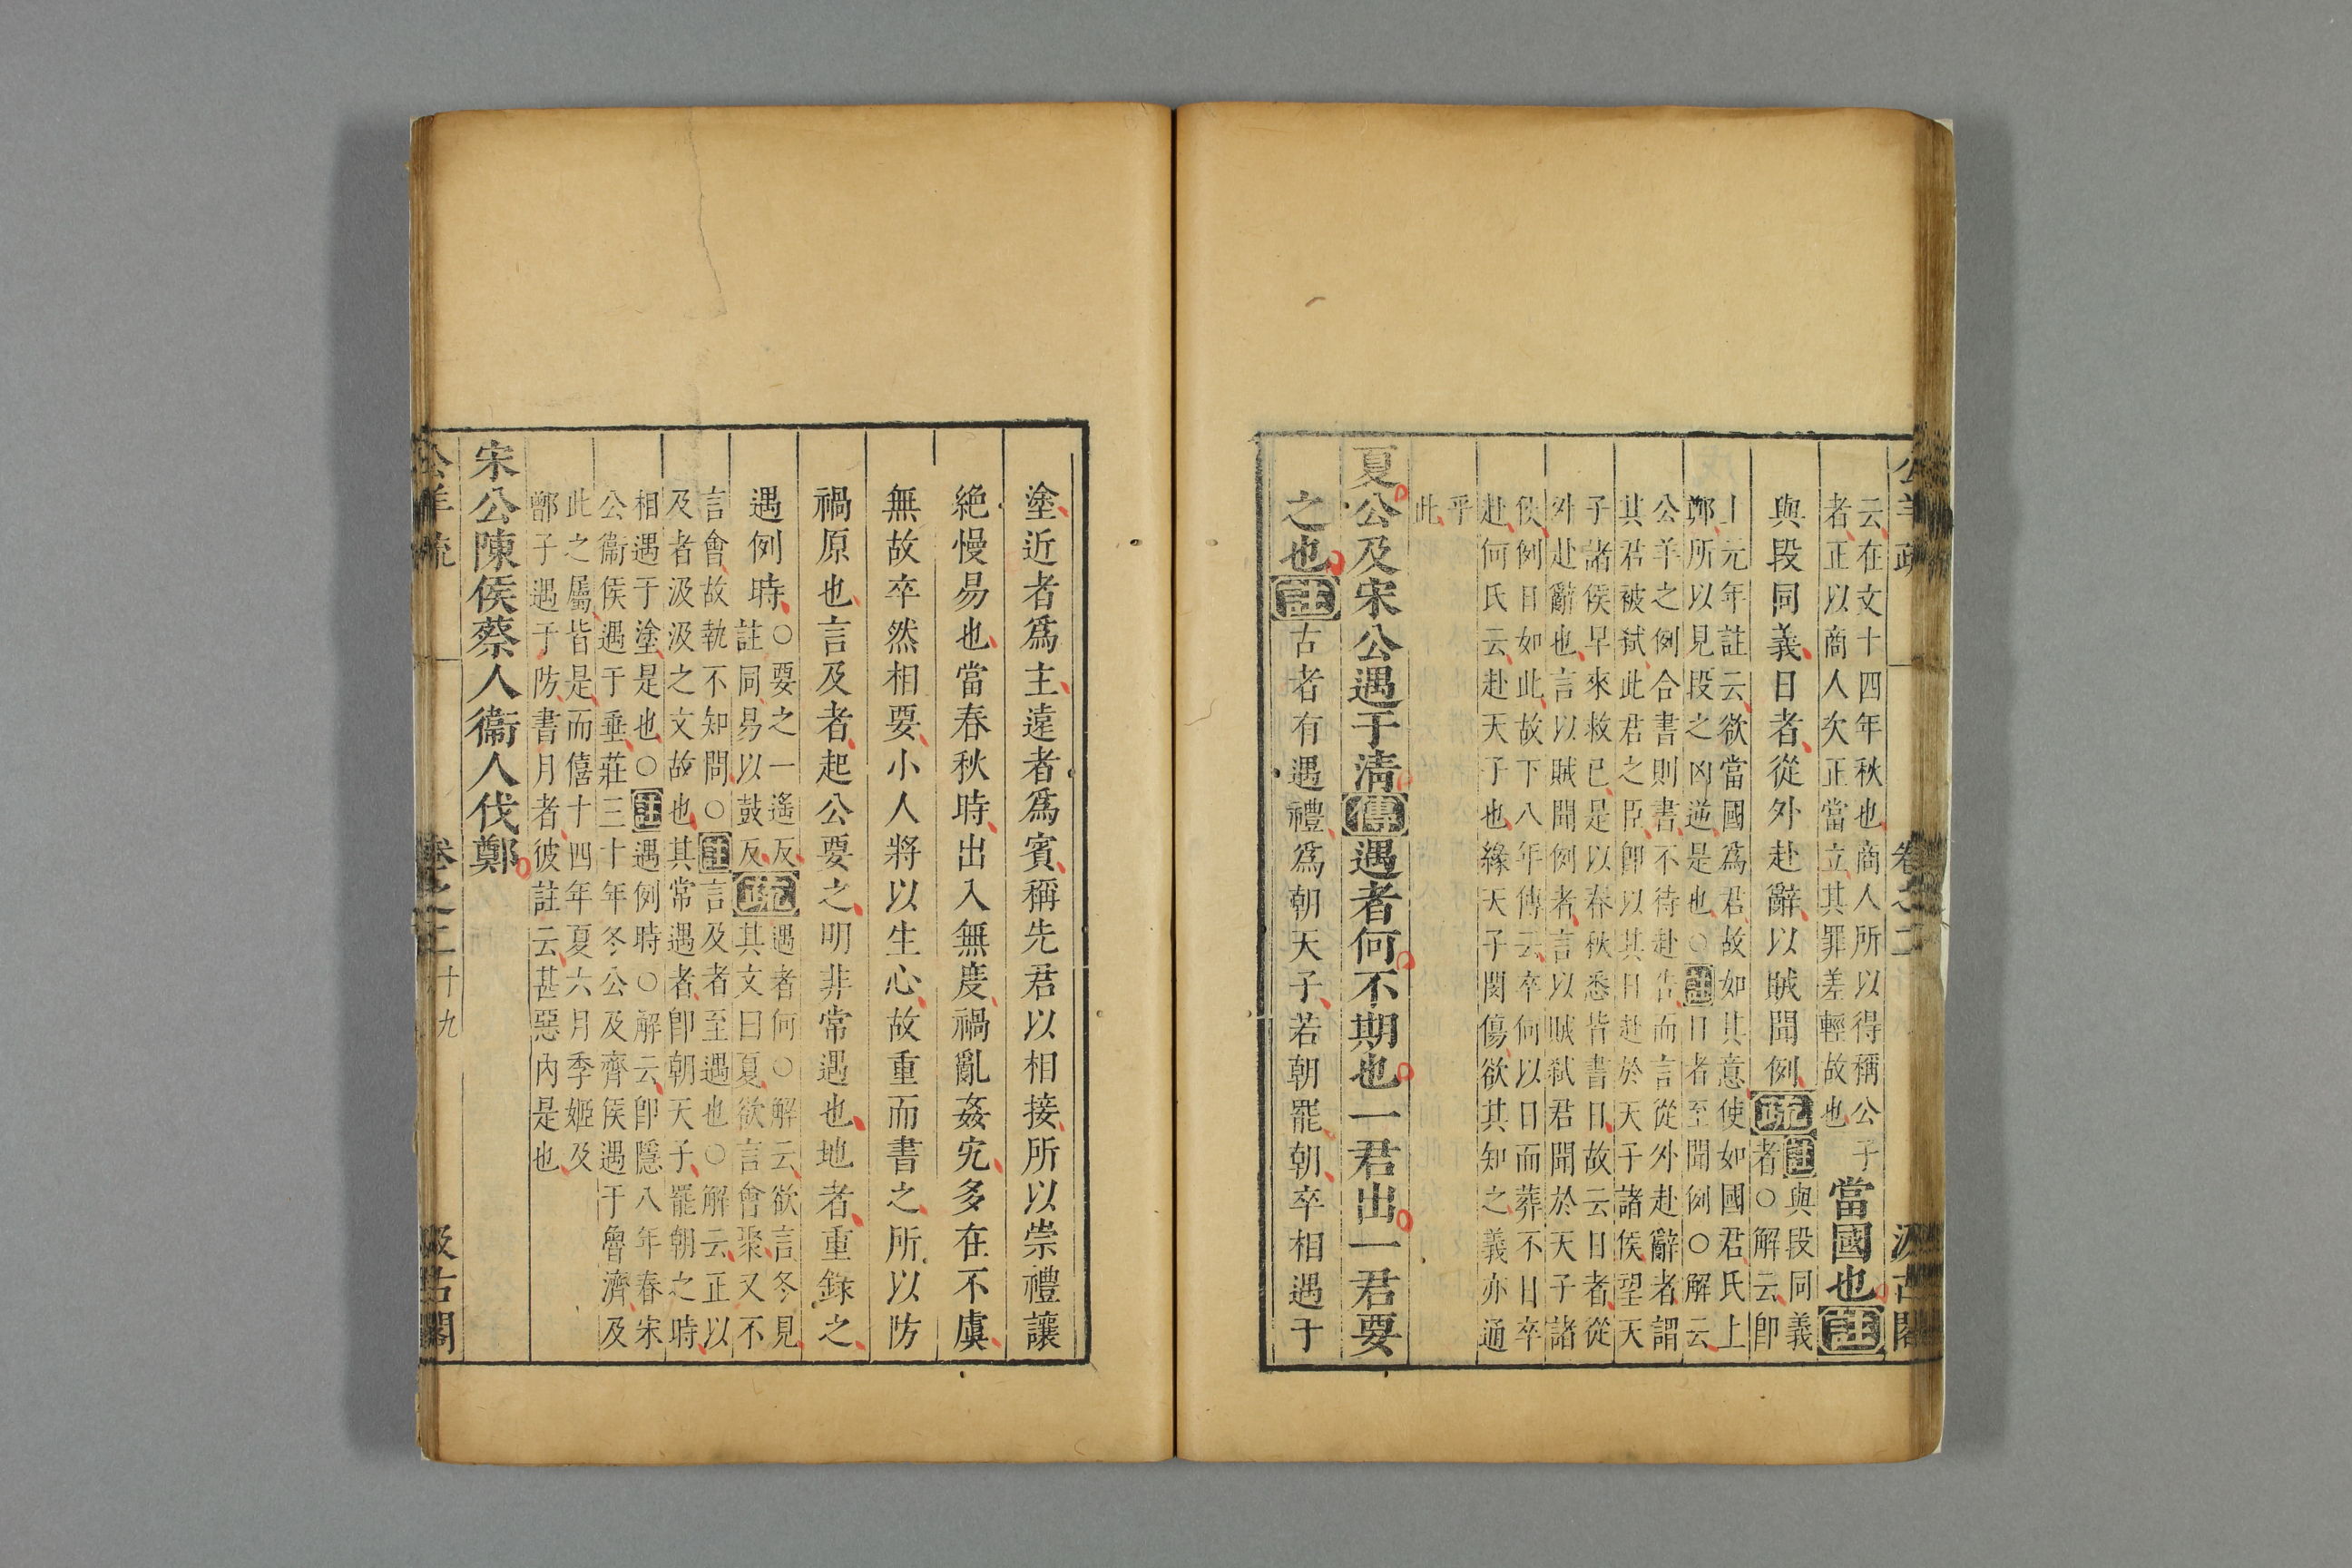 公羊疏 卷之二 汲古閣
云在文十四年秋也商人所以得稱公子
者正以商人次正當立其罪差輕故也
當國也註
與段同義日者從外赴辭以賊聞例疏
註與段同義
者○解云卽
上元年註云欲當國爲君故如其意使如國君氏上
鄭所以見段之凶逆是也○註日者至聞例○解云
公羊之例合書則書不待赴告而言從外赴辭者謂
其君被弑此君之臣卽以其日赴於天子諸侯望天
子諸侯早來救已是以春秋悉皆書日故云日者從
外赴辭也言以賊聞例者言以賊弑君聞於天子諸
侯例日如此故下八年傳云卒何以日而葬不日卒
赴何氏云赴天子也緣天子閔傷欲其知之義亦通
乎
此
夏公及宋公遇于淸傳遇者何不期也一君出一君要
之也註古者有遇禮爲朝天子若朝罷朝卒相遇于
塗近者爲主遠者爲賓稱先君以相接所以崇禮讓
絶慢易也當春秋時出入無度禍亂姦宄多在不虞
無故卒然相要小人將以生心故重而書之所以防
禍原也言及者起公要之明非常遇也地者重錄之
遇例時
○要之一遙反
註同易以鼓反
疏
遇者何○解云欲言冬見
其文曰夏欲言會聚又不
言會故執不知問○註言及者至遇也○解云正以
及者汲汲之文故也其常遇者卽朝天子罷朝之時
相遇于塗是也○註遇例時○解云卽隱八年春宋
公衞侯遇于垂莊三十年冬公及齊侯遇于魯濟及
此之屬皆是而僖十四年夏六月季姬及
鄫子遇于防書月者彼註云甚惡內是也
宋公陳侯蔡人衞人伐鄭
公羊疏 卷之二 十九 汲古閣